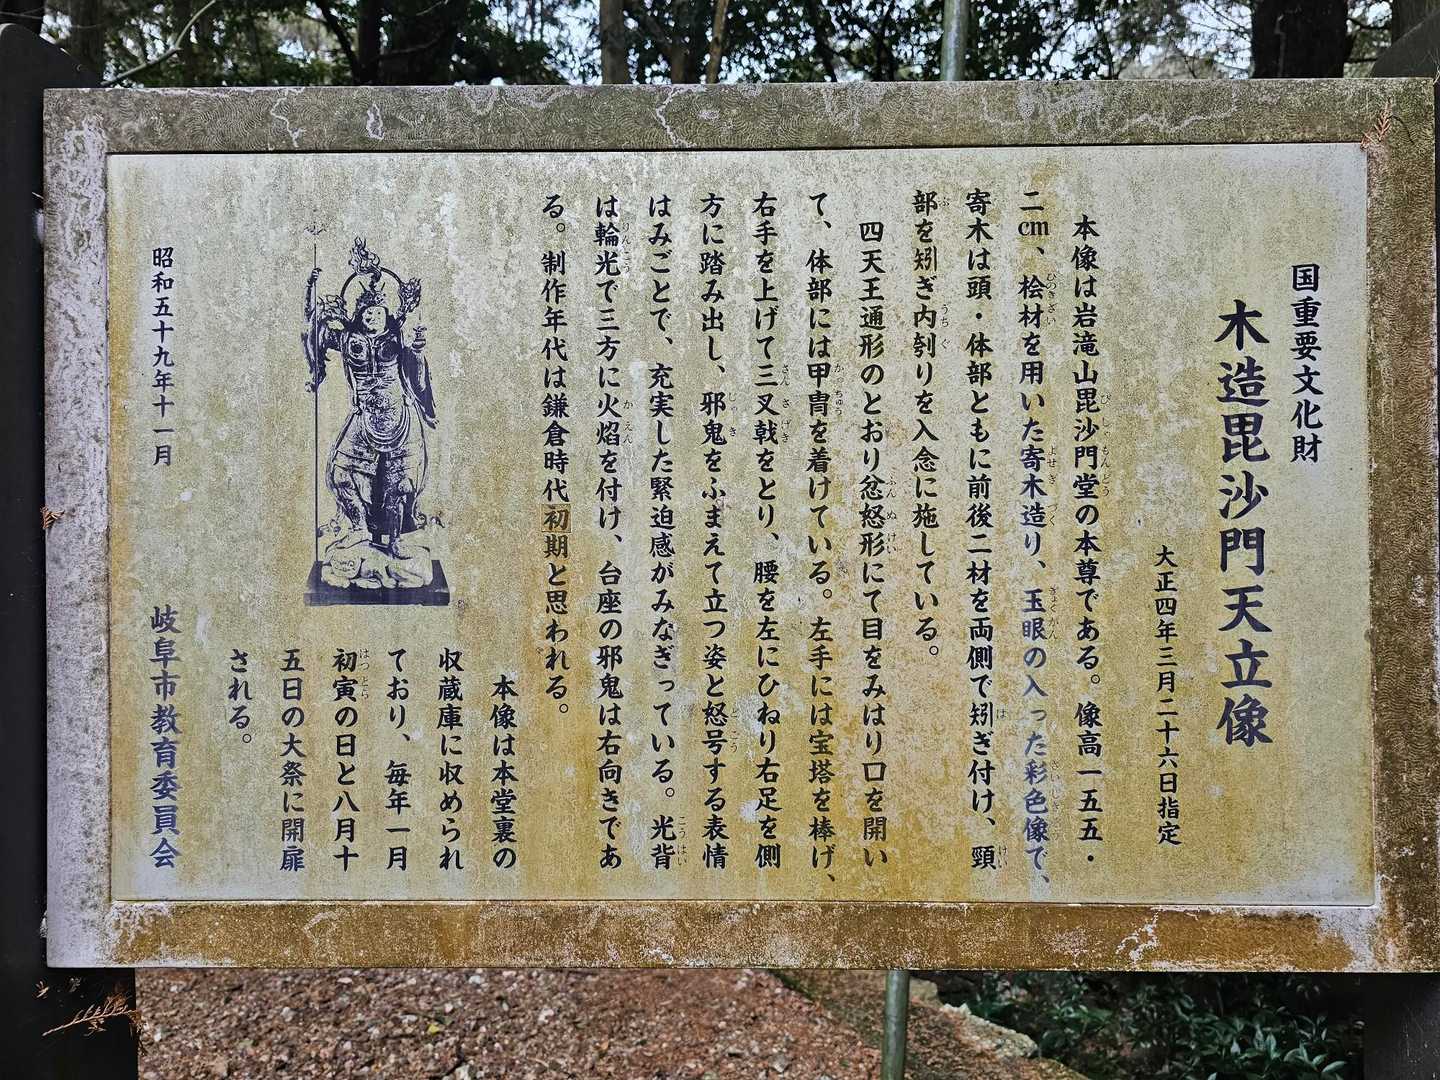 国重要文化財
木造毘沙門天立像
大正四年三月二十六日指定
本像は岩滝山毘沙門堂の本尊である。像高一五五・
二cm、桧材を用いた寄木造り、玉眼の入った彩色像で、
寄木は頭・体部ともに前後二材を両側で矧ぎ付け、頸
部を矧ぎ内刳りを入念に施している。
四天王通形のとおり忿怒形にて目をみはり口を開い
て、体部には甲冑を着けている。左手には宝塔を棒げ、
右手を上げて三叉戟をとり、腰を左にひねり右足を側
方に踏み出し、邪鬼をふまえて立つ姿と怒号する表情
はみごとで、充実した緊迫感がみなぎっている。光背
は輪光で三方に火焰を付け、台座の邪鬼は右向きであ
る。制作年代は鎌倉時代初期と思われる。
本像は本堂裏の
収蔵庫に収められ
ており、毎年一月
初寅の日と八月十
五日の大祭に開扉
される。
昭和五十九年十一月
岐阜市教育委員会